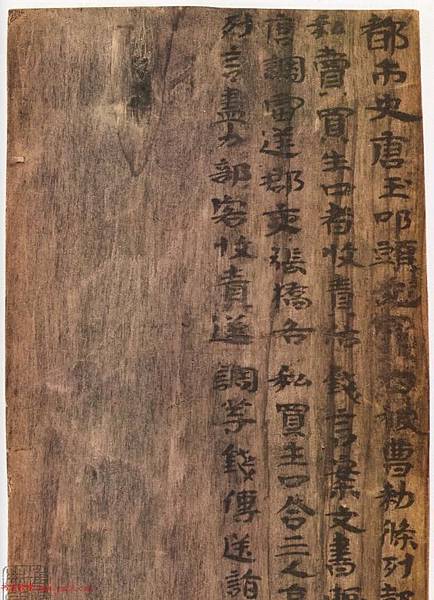 都市史唐玉叩頭死罪白被曹勑條列
私賣買生口者收責估錢言案文書輒
唐調雷逆郡吏張橋各私買生口合三人直
列言盡力部客收責逆調等錢傳送詣